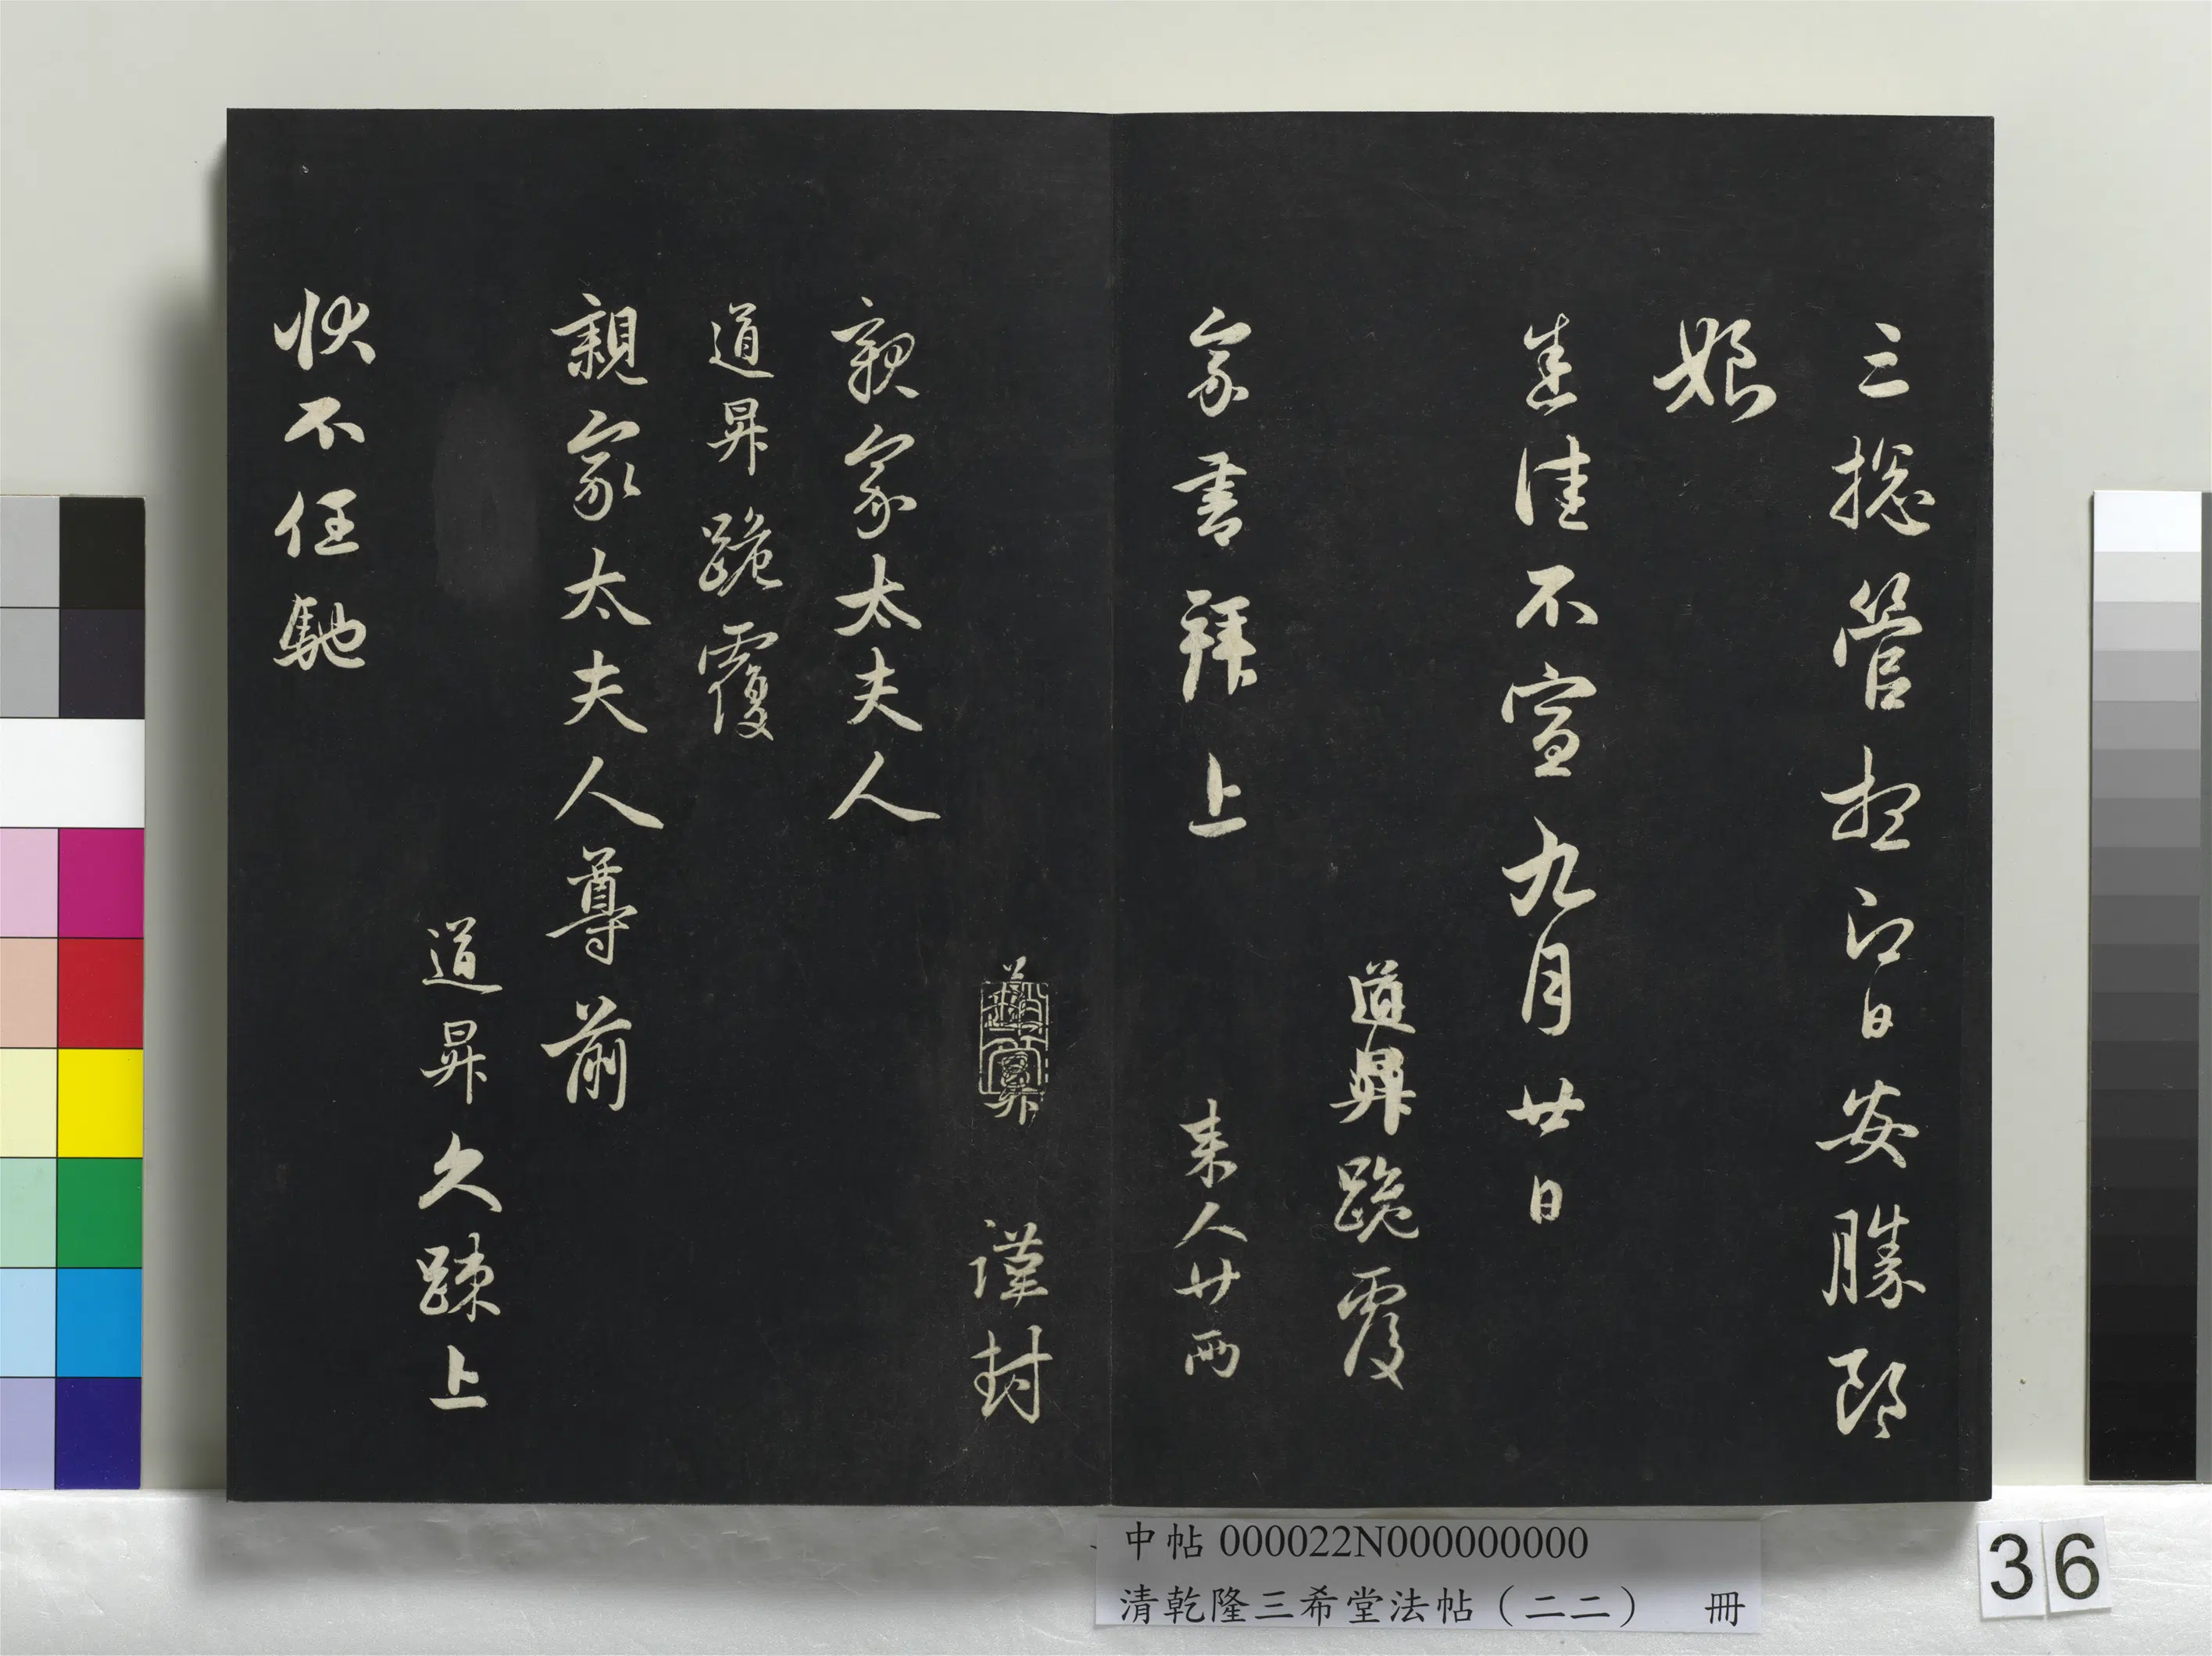 三総管想即日安勝郎
娘
悉佳不宣九月廿日
道昇跪覆
家書拜上 来人廿両
道昇 謹封
親家太夫人
道昇跪覆
親家太夫人尊前
道昇久踈上
狀不任馳
中帖 000022N000000000
清乾隆三希堂法帖（二二） 冊
36